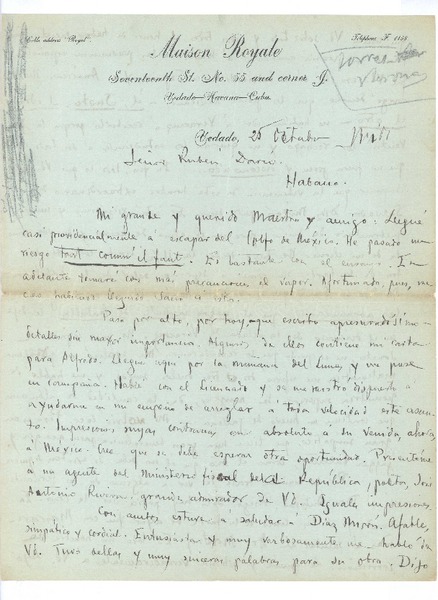 Cable address "Royal"
Telephone F. 1158
Maison Royale
Seventeenth St. No. 55 and corner J.
Vedado—Havana—Cuba.
Torres
Vedado, 25 Octubre
Señor Ruben Darío.
Habana.
Mi grande y querido Maestro y amigo: Llegué
casi providencialmente á escapar del Golfo de México. He pasado un
riesgo tout comm' il faut. Es bastante con el ensayo. En
adelante tomaré con más precauciones el vapor. Afortunado, pues, me
hubiera llegado sano á esta.
Paso por alto, por hoy, que escribo apresuradísimo
detalles sin mayor importancia. Algunos de ellos contiene mi carta
para Alfredo. Llegué aquí por la mañana del Lunes y me puse
en campaña. Hablé con el Licenciado y se mostró dispuesto á
ayudarme en mi empeño de arreglar á toda velocidad este asun-
to. Impresiones suyas contrarias en absoluto á su venida, ahora,
á México. Cree que se debe esperar otra oportunidad. Presentóme
á un agente del Ministerio fiscal de la República, poeta, José
Antonio Rivera: grande admirador de Vd. Iguales impresiones.
Con antes estuve á saludar á Díaz Mirón. Afable,
simpático y cordial. Entusiasta y muy verbosamente me habló de
Vd. Tuvo bellas y muy sinceras palabras para su obra. Dijo